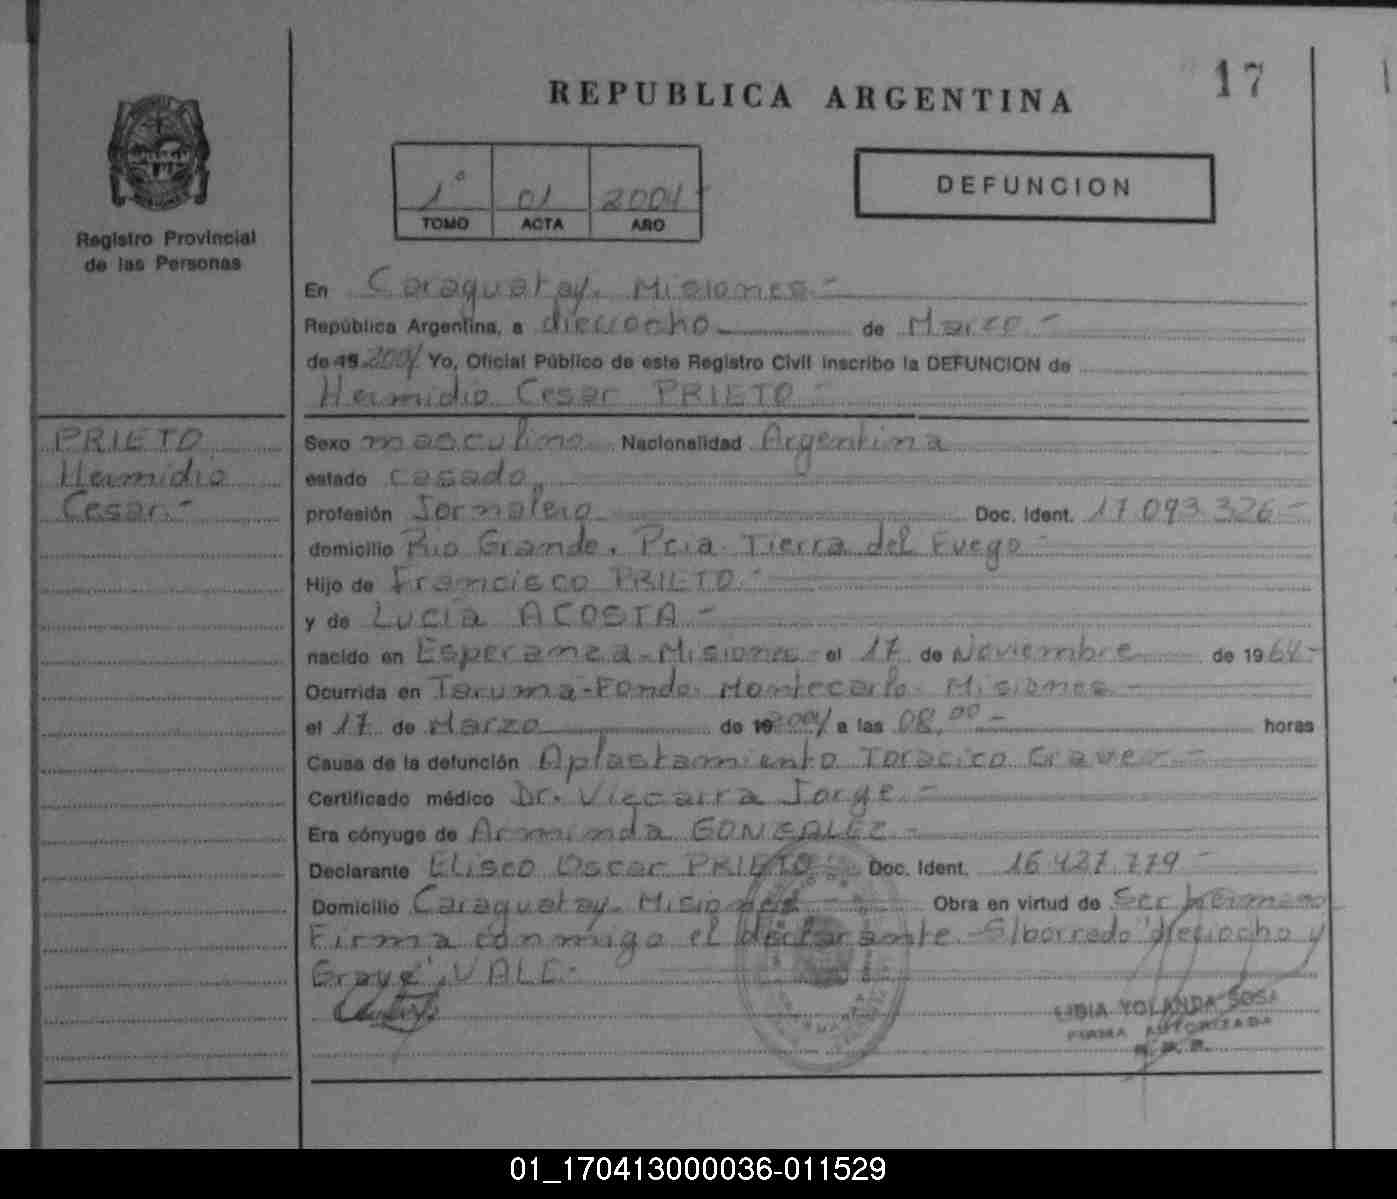 17
REPUBLICA ARGENTINA
1° 01 2004
TOMO ACTA AÑO
DEFUNCION
Registro Provincial
de las Personas
En Caraguatay. Misiones.-
República Argentina, a dieciocho de Marzo -
de 19 2004 Yo, Oficial Público de este Registro Civil inscribo la DEFUNCION de
Hermidio Cesar PRIETO -
PRIETO
Hermidio
Cesar.-
Sexo masculino Nacionalidad Argentina
estado casado
profesión Jornalero Doc. Ident. 17.093.326-
domicilio Rio Grande. Pcia. Tierra del Fuego -
Hijo de Francisco PRIETO.-
y de Lucía ACOSTA -
nacido en Esperanza - Misiones el 17 de Noviembre de 1964-
Ocurrida en Taruma-Fondo. Montecarlo. Misiones -
el 17 de Marzo de 19 2004 a las 08,00 - horas
Causa de la defunción Aplastamiento Toracico Grave -
Certificado médico Dr. Jorge -
Era cónyuge de Arminda GONZALEZ -
Declarante Eliseo Oscar PRIETO Doc. Ident. 16.427.779 -
Domicilio Caraguatay. Misiones - Obra en virtud de Ser hermano
Firma conmigo el declarante.- El borrado "dieciocho y
Grave", VALE.-
LIBIA YOLANDA SOSA
FIRMA AUTORIZADA
01_170413000036-011529